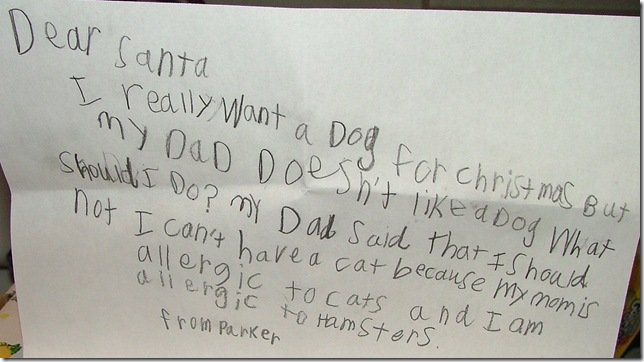 Dear Santa
I really want a Dog for christmas But
my DaD Doesn't like a Dog What
should I Do? my Dad said that I should
not I can't have a cat because my mom is
allergic to cats and I am
allergic to Hamsters.
from Parker